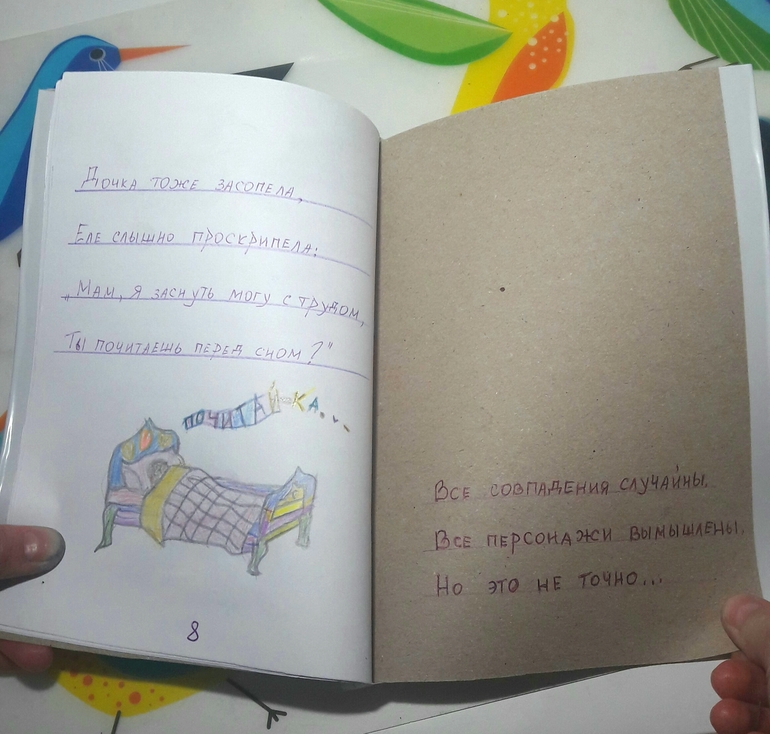 Дочка тоже засопела,
Еле слышно проскрипела:
„Мам, я заснуть могу с трудом,
Ты почитаешь перед сном?"
ПОЧИТАЙ-КА...
8
Все совпадения случайны.
Все персонажи вымышлены.
Но это не точно...